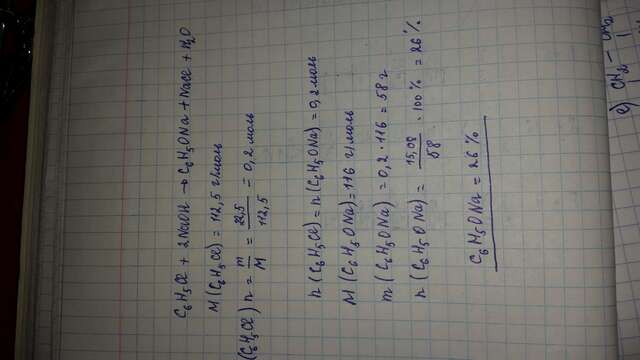 C₆H₅Cl + 2NaOH → C₆H₅ONa + NaCl + H₂O
M(C₆H₅Cl) = 112,5 г/моль
(C₆H₅Cl) n = m/M = 22,5/112,5 = 0,2 моль
n(C₆H₅Cl) = n(C₆H₅ONa) = 0,2 моль
M(C₆H₅ONa) = 116 г/моль
m(C₆H₅ONa) = 0,2 · 116 = 58 г
n(C₆H₅ONa) = 15,08/58 · 100% = 26%
C₆H₅ONa = 26%
e) CH₂ — CH₂